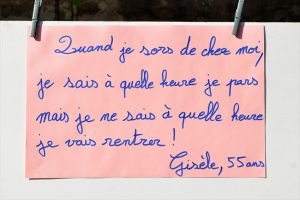 Quand je sors de chez moi,
je sais à quelle heure je pars
mais je ne sais à quelle heure
je vais rentrer !
Gisèle, 55 ans